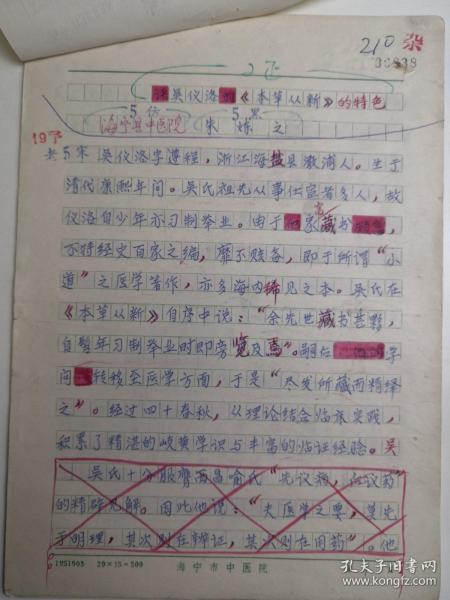 210 杂
谈吴仪洛的《本草从新》的特色
5仿 5黑
海宁县中医院 朱 炼 之
老5宋 吴仪洛字遵程，浙江海盐县澉浦人。生于
清代康熙年间。吴氏祖先从事仕宦者多人，故
仪洛自少年亦习制举业。由于家富藏书
不特经史百家之编，靡不赅备，即于所谓“小
道”之医学著作，亦多海内稀见之本。吴氏在
《本草从新》自序中说：“余先世藏书甚夥，
自髫年习制举业时即旁览及焉”。嗣后学
问转移至医学方面，于是“尽发所藏而精绎
之”。经过四十春秋，从理论结合临床实践，
积累了精湛的岐黄学识与丰富的临证经验。吴
吴氏十分服膺西昌喻氏“先议病，后议药”
的精辟见解。因此他说：“夫医学之要，莫先
于明理，其次则在辨证，其次则在用药”。他
1951503 20×15=300 海宁市中医院
孔夫子旧书网